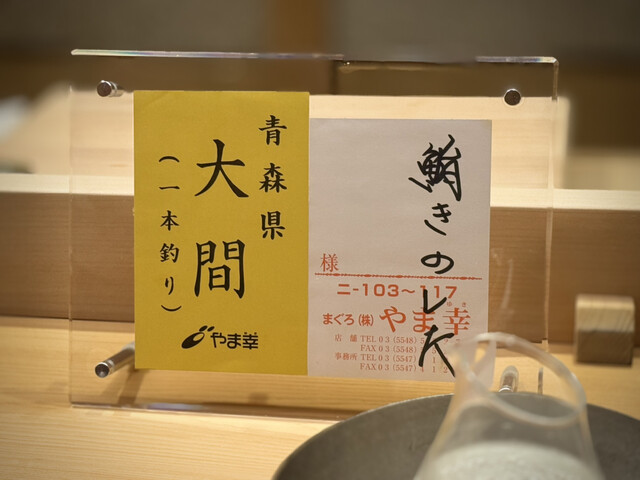 青森県
大間
(一本釣り)
やま幸
鮨きのした
様
ニ-103~117
まぐろ(株)やま幸
店舗 TEL 03 (5548)
FAX 03 (5548)
事務所 TEL 03 (5547)
FAX 03 (5547)